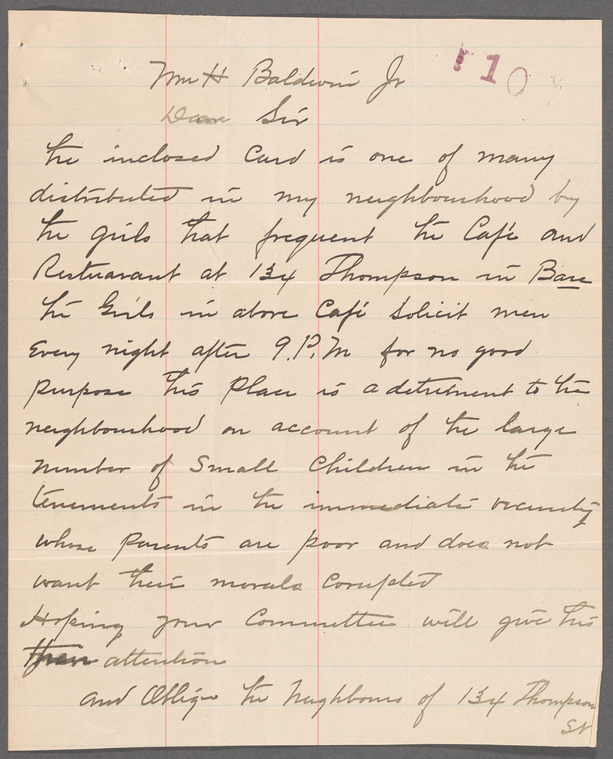 Wm H Baldwin Jr
110
Dear Sir
the inclosed Card is one of many
distributed in my neighbourhood by
the girls that frequent the Café and
Restuarant at 134 Thompson in Base
the Girls in above Café Solicit men
Every night after 9.P.M for no good
purpose this Place is a detriment to the
neighbourhood on account of the large
number of Small Children in the
tenements in the immediate vicinity
whose Parents are poor and does not
want their morals Corupted
Hoping your Committee will give this
attention
and Oblige the Neighbours of 134 Thompson
St